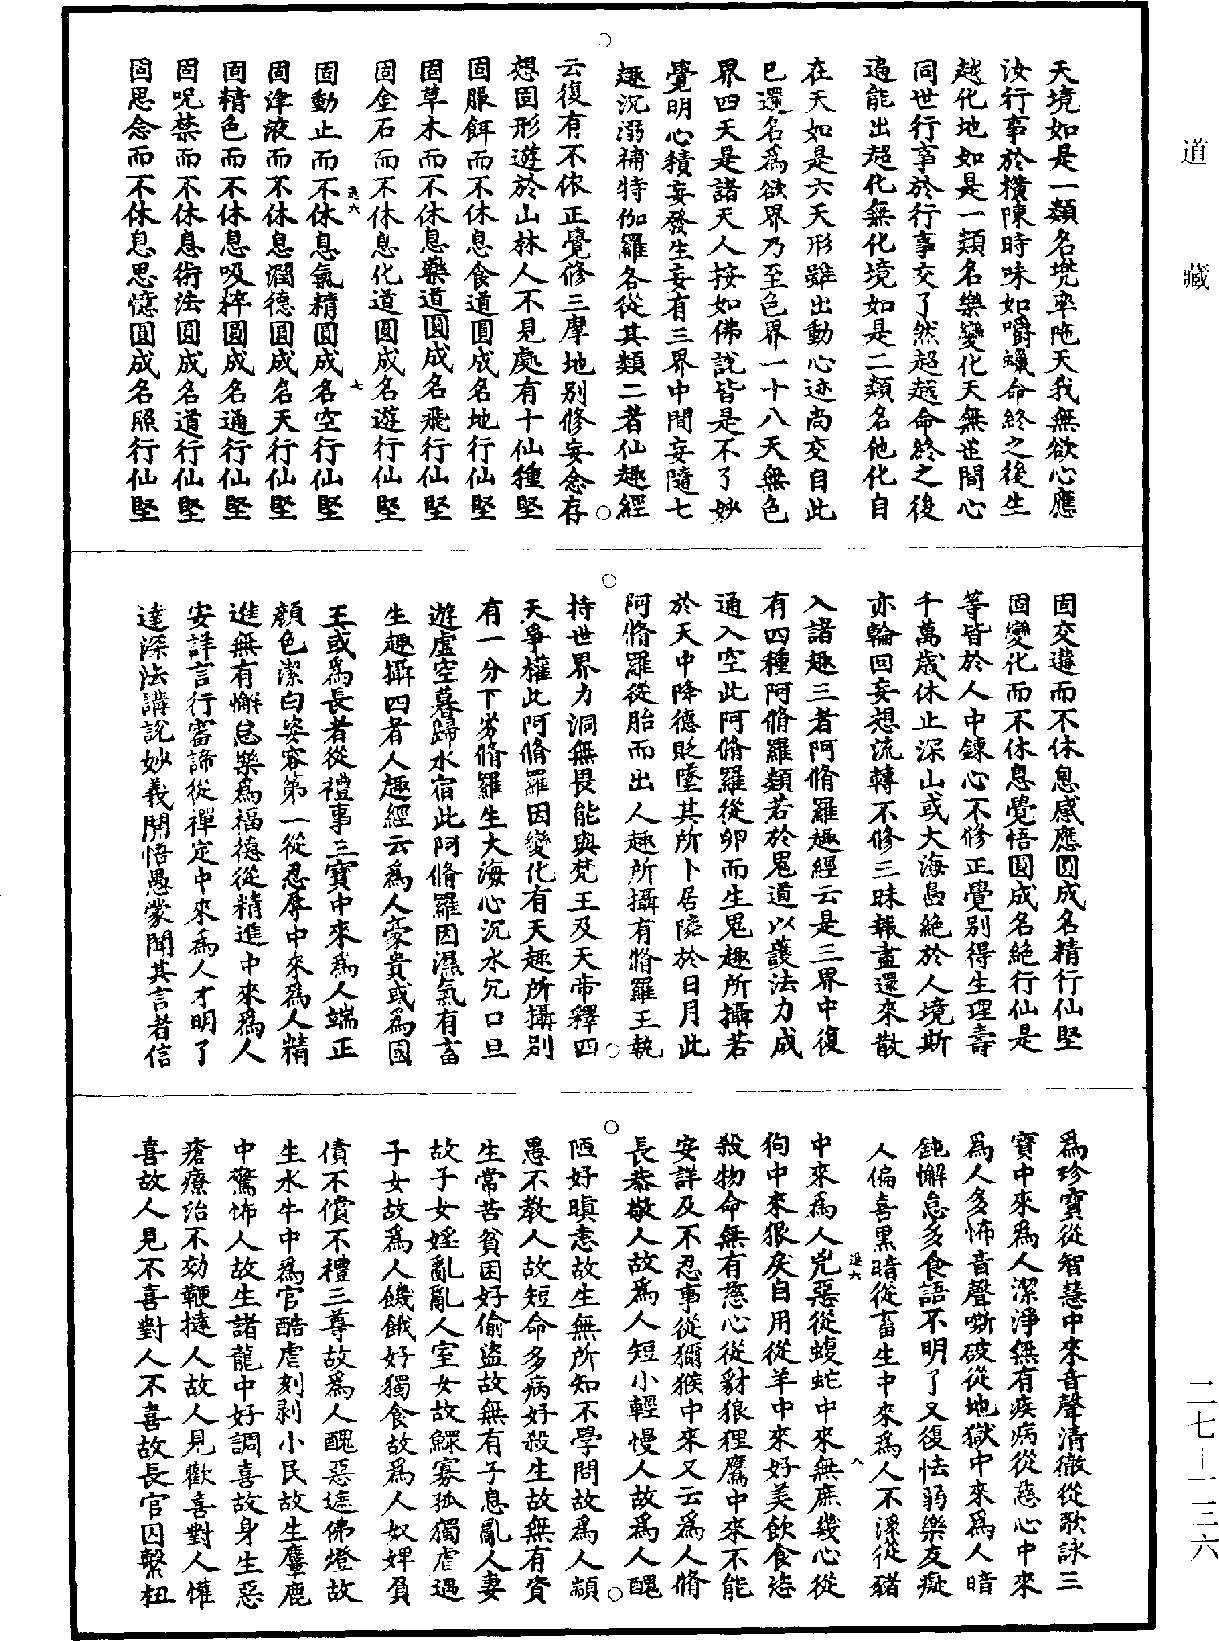 道藏
天境如是一類名兜率陁天我無欲心應
汝行事於橫陳時味如嚼蠟命終之後生
越化地如是一類名樂變化天無世間心
同世行事於行事交了然超越命終之後
遍能出超化無化境如是二類名他化自
在天如是六天形雖出動心迹尚交自此
已還名爲欲界乃至色界一十八天無色
界四天是諸天人按如佛說皆是不了妙
覺明心積妄發生妄有三界中間妄隨七
趣沉溺補特伽羅各從其類二者仙趣經
云復有不依正覺修三摩地別修妄念存
想固形遊於山林人不見處有十仙種堅
固服餌而不休息食道圓成名地行仙堅
固草木而不休息藥道圓成名飛行仙堅
固金石而不休息化道圓成名遊行仙堅
固動止而不休息氣精圓成名空行仙堅
固津液而不休息潤德圓成名天行仙堅
固精色而不休息吸粹圓成名通行仙堅
固呪禁而不休息術法圓成名道行仙堅
固思念而不休息思憶圓成名照行仙堅
固交遘而不休息感應圓成名精行仙堅
固變化而不休息覺悟圓成名絕行仙是
等皆於人中鍊心不修正覺別得生理壽
千萬歲休止深山或大海島絕於人境斯
亦輪回妄想流轉不修三昧報盡還來散
入諸趣三者阿脩羅趣經云是三界中復
有四種阿脩羅類若於鬼道以護法力成
通入空此阿脩羅從卵而生鬼趣所攝若
於天中降德貶墜其所卜居隣於日月此
阿脩羅從胎而出人趣所攝有脩羅王執
持世界力洞無畏能與梵王及天帝釋四
天爭權此阿脩羅因變化有天趣所攝別
有一分下劣脩羅生大海心沉水穴口旦
遊虛空暮歸水宿此阿脩羅因濕氣有畜
生趣攝四者人趣經云爲人豪貴或爲國
王或爲長者從禮事三寶中來爲人端正
顏色潔白姿容第一從忍辱中來爲人精
進無有懈怠樂爲福德從精進中來爲人
安詳言行審諦從禪定中來爲人才明了
達深法講說妙義開悟愚蒙聞其言者信
爲珍寶從智慧中來音聲清徹從歌詠三
寶中來爲人潔淨無有疾病從慈心中來
爲人多怖音聲嘶破從地獄中來爲人暗
鈍懈怠多食語不明了又復怯弱樂友癡
人偏喜黑暗從畜生中來爲人不潔從豬
中來爲人兇惡從蝮蛇中來無庶幾心從
狗中來狠戾自用從羊中來好美飲食恣
殺物命無有慈心從豺狼狸鷹中來不能
安詳及不忍事從獼猴中來又云爲人脩
長恭敬人故爲人短小輕慢人故爲人醜
陋好瞋恚故生無所知不學問故爲人顓
愚不教人故短命多病好殺生故無有資
生常苦貧困好偷盜故無有子息亂人妻
故子女婬亂亂人室女故鰥寡孤獨虐遇
子女故爲人饑餓好獨食故爲人奴婢負
債不償不禮三尊故爲人醜惡遮佛燈故
生水牛中爲官酷虐刻剥小民故生麞鹿
中驚怖人故生諸龍中好調喜故身生惡
瘡療治不効鞭撻人故人見歡喜對人懽
喜故人見不喜對人不喜故長官囚繫杻
二七－一三六